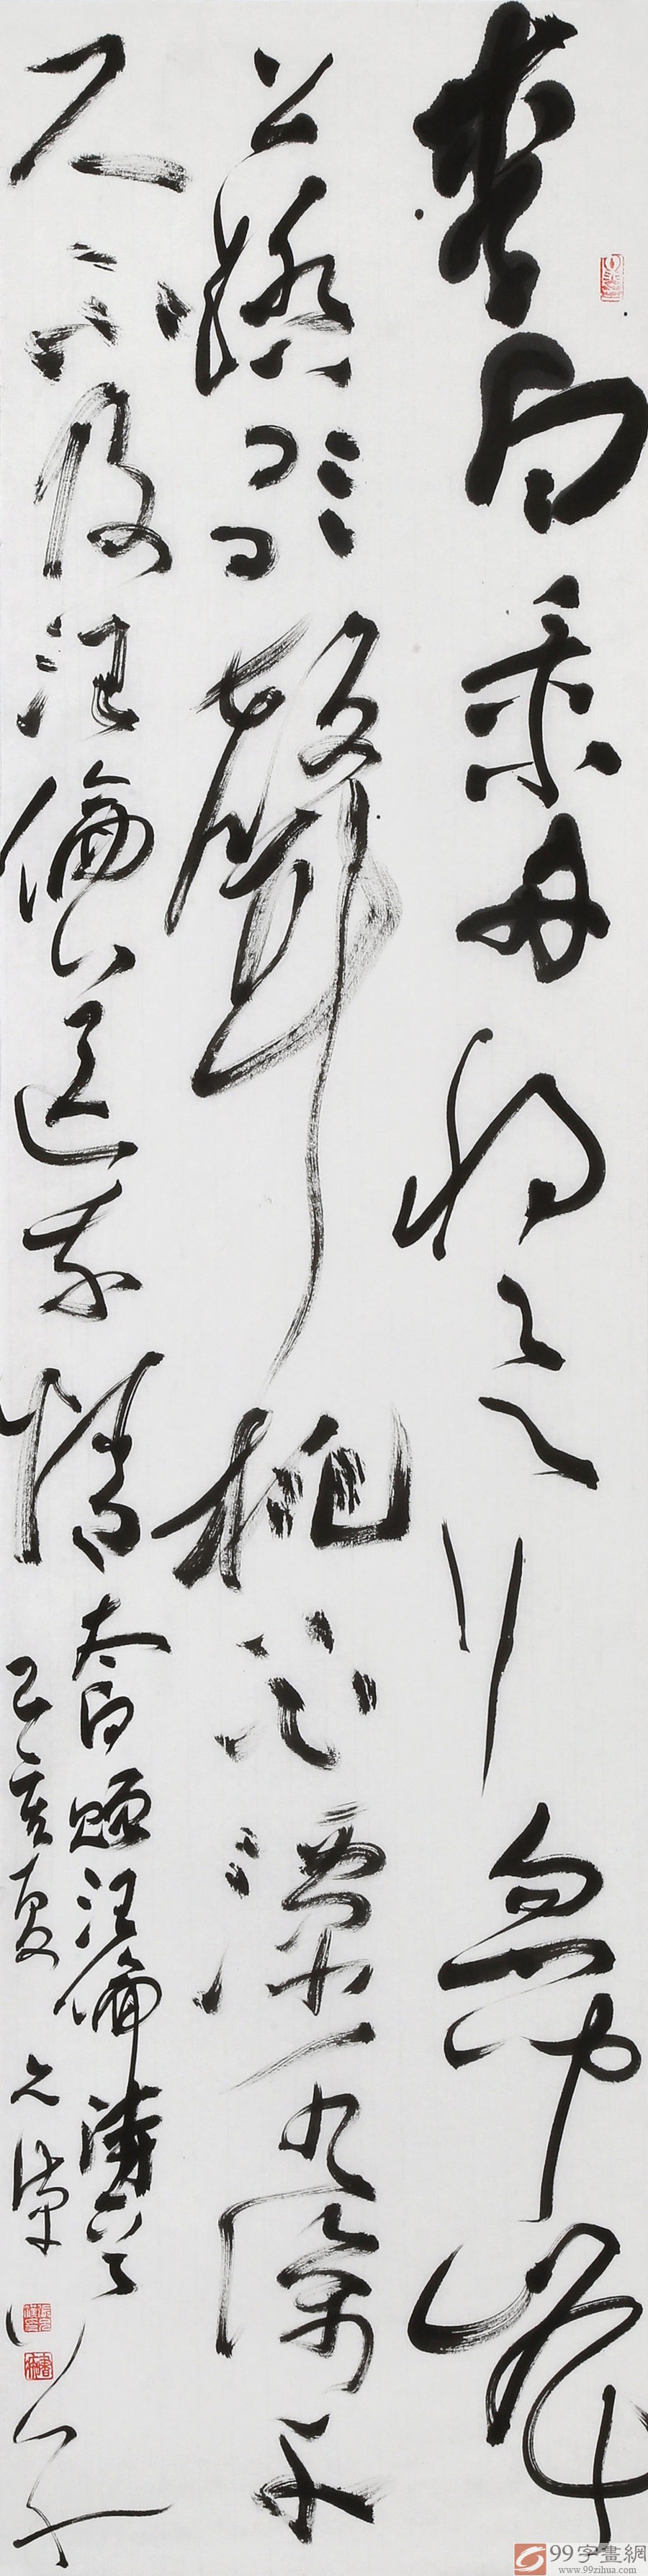 李白乘舟將欲行忽聞岸
上踏歌聲桃花潭水深千
尺不及汪倫送我情
太白贈汪倫詩
己亥夏
99字畫網
www.99zihua.com